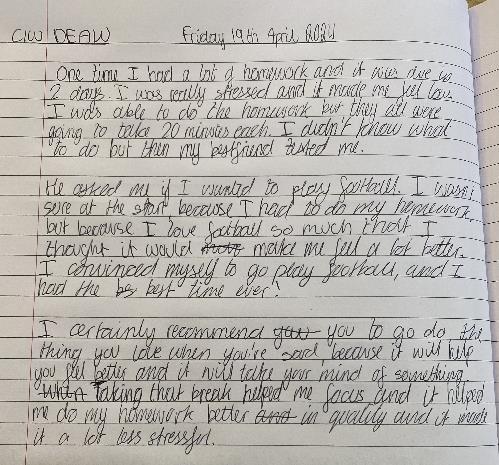 C/W DEAW Friday 19th April 2024
One time I had a lot of homework and it was due in
2 days. I was really stressed and it made me feel low.
I was able to do the homework but they all were
going to take 20 minutes each. I didn't know what
to do but then my bestfriend texted me.
He asked my if I wanted to play football. I wasn't
sure at the start because I had to do my homework,
but because I love football so much that I
thought it would make me feel a lot better.
I convinced myself to go play football, and I
had the best time ever!
I certainly recommend you to go do the
thing you love when you're sad, because it will help
you feel better and it will take your mind of something
Taking that break helped me focus and it helped
me do my homework better in quality and it made
it a lot less stressful.